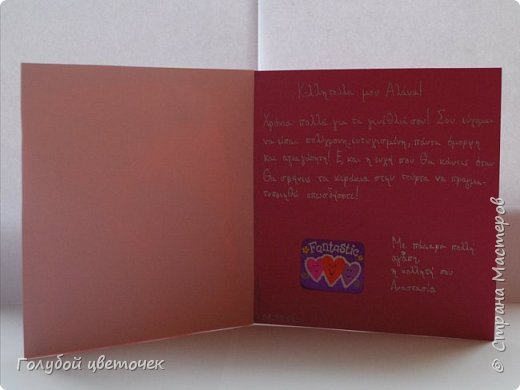 Κολλητούλα μου Αλάνα!
Χρόνια πολλά για τα γενέθλιά σου! Σου εύχομαι
να είσαι πολύχρονη, ευτυχισμένη, πάντα όμορφη
και αγαπητή! Ε, και η ευχή που θα κάνεις όταν
θα σβήνεις τα κεράκια στην τούρτα να πραγμα-
τοποιηθεί οπωσδήποτε!
Fantastic
Με πάααρα πολλή
αγάπη,
η κολλητή σου
Αναστασία
Голубой цветочек
© Страна Мастеров